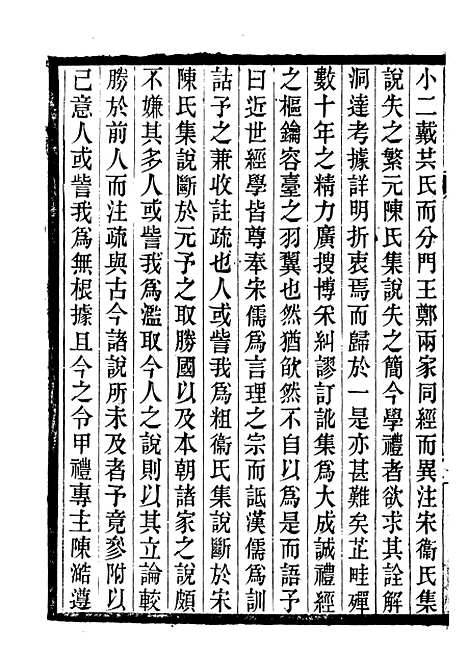 小二戴其氏而分門王鄭兩家同經而異注宋衞氏集
說失之繁元陳氏集說失之簡今學禮者欲求其詮解
洞達考據詳明折衷焉而歸於一是亦甚難矣芷畦殫
數十年之精力廣搜博釆糾謬訂訛集爲大成誠禮經
之樞鑰容臺之羽翼也然猶欿然不自以爲是而語予
曰近世經學皆尊奉宋儒爲言理之宗而詆漢儒爲訓
詁予之兼收註疏也人或訾我爲粗衞氏集說斷於宋
陳氏集說斷於元予之取勝國以及本朝諸家之說頗
不嫌其多人或訾我爲濫取今人之說則以其立論較
勝於前人而注疏與古今諸說所未及者予竟參附以
己意人或訾我爲無根據且今之令甲禮專主陳澔遵